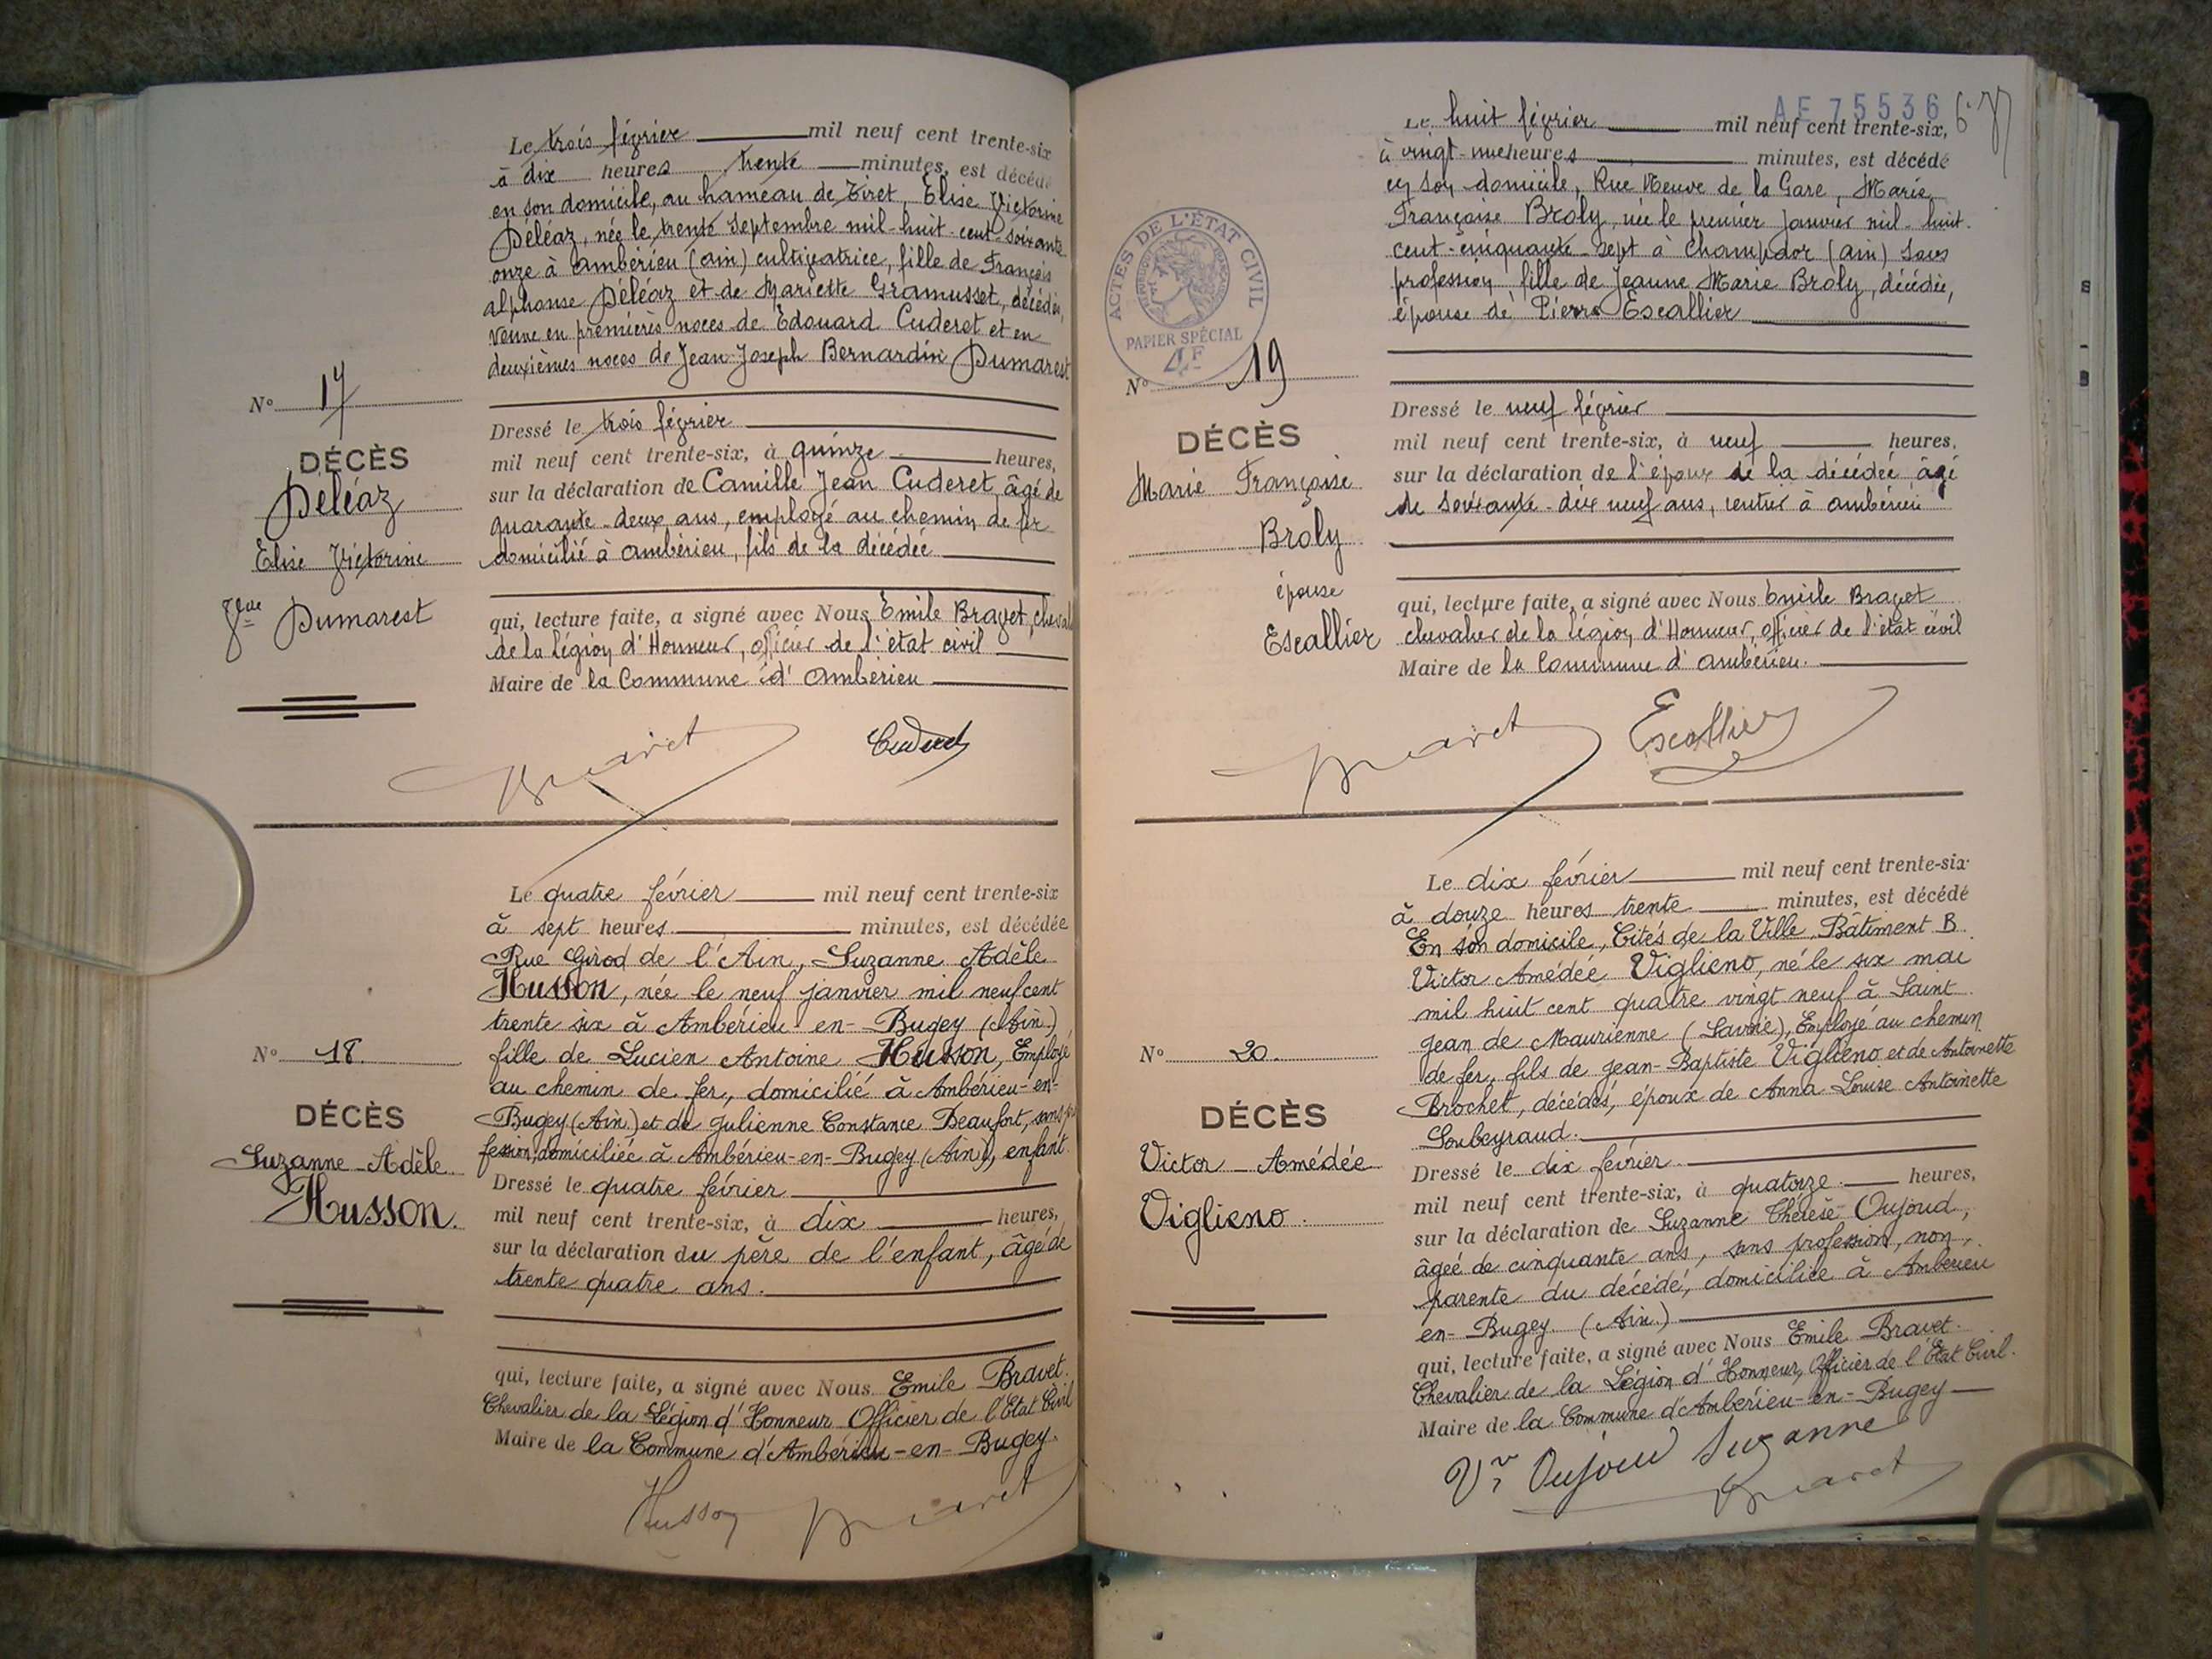 Le trois février mil neuf cent trente-six
à dix heures trente minutes, est décédé
en son domicile, au hameau de Tiret, Élise Victorine
Déléaz, née le trente Septembre mil-huit-cent-soixante
onze à ambérieu (ain) cultivatrice, fille de François
alphonse Déléaz et de Mariette Gramusset, décédés,
veuve en premières noces de Edouard Cuderet et en
deuxièmes noces de Jean Joseph Bernardin Dumarest
N° 17
DÉCÈS
Déléaz
Elise Victorine
Vve Dumarest
Dressé le trois février
mil neuf cent trente-six, à quinze heures,
sur la déclaration de Camille Jean Cuderet, âgé de
quarante-deux ans, employé au chemin de fer
domicilié à ambérieu, fils de la décédée
qui, lecture faite, a signé avec Nous Emile Bravet, cheval
de la légion d'Honneur, officier de l'état civil
Maire de la Commune d'ambérieu
Bravet Cuderet
Le quatre février mil neuf cent trente-six
à sept heures minutes, est décédée
Rue Girod de l'Ain, Suzanne Adèle
Husson, née le neuf janvier mil neuf cent
trente six à Ambérieu-en-Bugey (Ain)
fille de Lucien Antoine Husson, Employé
au chemin de fer, domicilié à Ambérieu-en-
Bugey (Ain) et de Julienne Constance Beaufort, sans pro
fession, domiciliée à Ambérieu-en-Bugey (Ain), enfant.
N° 18.
DÉCÈS
Suzanne-Adèle
Husson.
Dressé le quatre février
mil neuf cent trente-six, à dix heures,
sur la déclaration du père de l'enfant, âgé de
trente quatre ans.
qui, lecture faite, a signé avec Nous Emile Bravet.
Chevalier de la Légion d'Honneur Officier de l'Etat Civil
Maire de la Commune d'Ambérieu-en-Bugey.
Husson Bravet
AE 75536
Le huit février mil neuf cent trente-six,
à vingt-une heures minutes, est décédé
en son domicile, Rue Neuve de la Gare, Marie
Françoise Broly, née le premier Janvier mil-huit-
cent-cinquante-sept à Champdor (ain) sans
profession fille de Jeanne Marie Broly, décédée,
épouse de Pierre Escallier
ACTES DE L'ÉTAT CIVIL
PAPIER SPÉCIAL
4F
N° 19
DÉCÈS
Marie Françoise
Broly
épouse
Escallier
Dressé le neuf février
mil neuf cent trente-six, à neuf heures,
sur la déclaration de l'époux de la décédée âgé
de soixante-dix neuf ans, rentier à ambérieu
qui, lecture faite, a signé avec Nous Emile Bravet
chevalier de la légion d'Honneur, officier de l'état civil
Maire de la Commune d'ambérieu.
Bravet Escallier
Le dix février mil neuf cent trente-six
à douze heures trente minutes, est décédé
En son domicile, Cités de la Ville, Bâtiment B
Victor Amédée Viglieno, né le six mai
mil huit cent quatre vingt neuf à Saint
Jean de Maurienne (Savoie), Employé au chemin
de fer, fils de Jean-Baptiste Viglieno et de Antoinette
Brochet, décédés, époux de Anna Louise Antoinette
Soubeyraud.
N° 20.
DÉCÈS
Victor Amédée
Viglieno.
Dressé le dix février
mil neuf cent trente-six, à quatorze heures,
sur la déclaration de Suzanne Thérèse Oujoud,
âgée de cinquante ans, sans profession, non
parente du décédé, domiciliée à Ambérieu
en-Bugey. (Ain.)
qui, lecture faite, a signé avec Nous Emile Bravet.
Chevalier de la Légion d'Honneur, Officier de l'Etat Civil.
Maire de la Commune d'Ambérieu-en-Bugey
Vve Oujoud Suzanne
Bravet